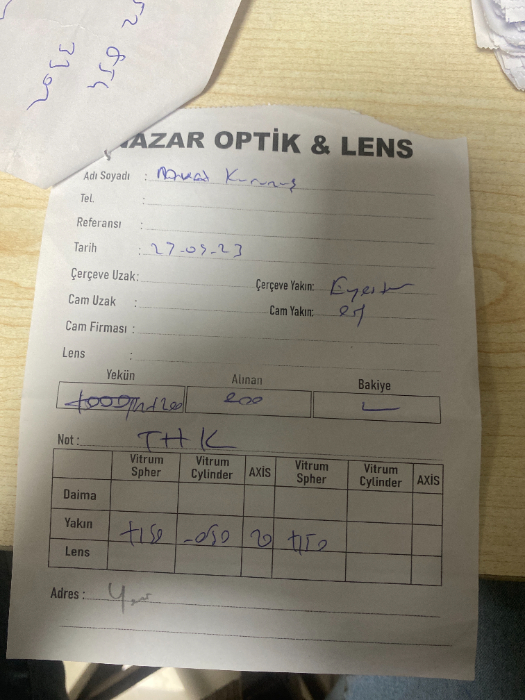 NAZAR OPTİK & LENS
Adı Soyadı : Murat
Tel. :
Referansı :
Tarih : 27-05-23
Çerçeve Uzak: Çerçeve Yakın:
Cam Uzak : Cam Yakın:
Cam Firması :
Lens :
Yekün Alınan Bakiye
200
Not : THK
Vitrum Spher Vitrum Cylinder AXİS Vitrum Spher Vitrum Cylinder AXİS
Daima
Yakın +150 -050 20 +150
Lens
Adres :